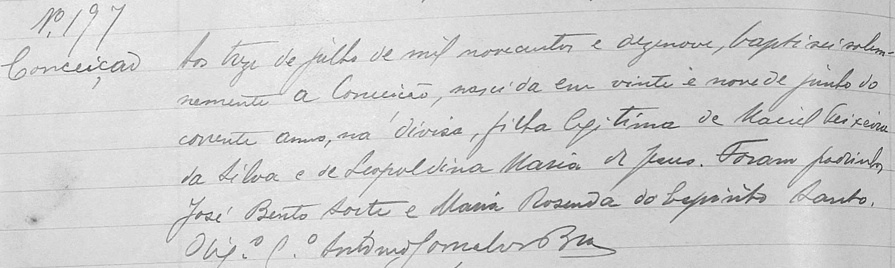 Nº 197
Conceição
Aos treze de julho de mil novecentos e dezenove, baptisei solem-
nemente a Conceição, nascida em vinte e nove de junho do
corrente anno, na divisa, filha legitima de Maciel Teixeira
da Silva e de Leopoldina Maria de Jesus. Foram padrinhos
José Bento Sorte e Maria Rosenda do Espirito Santo.
O Vig.º C.º Antonio Gonçalves